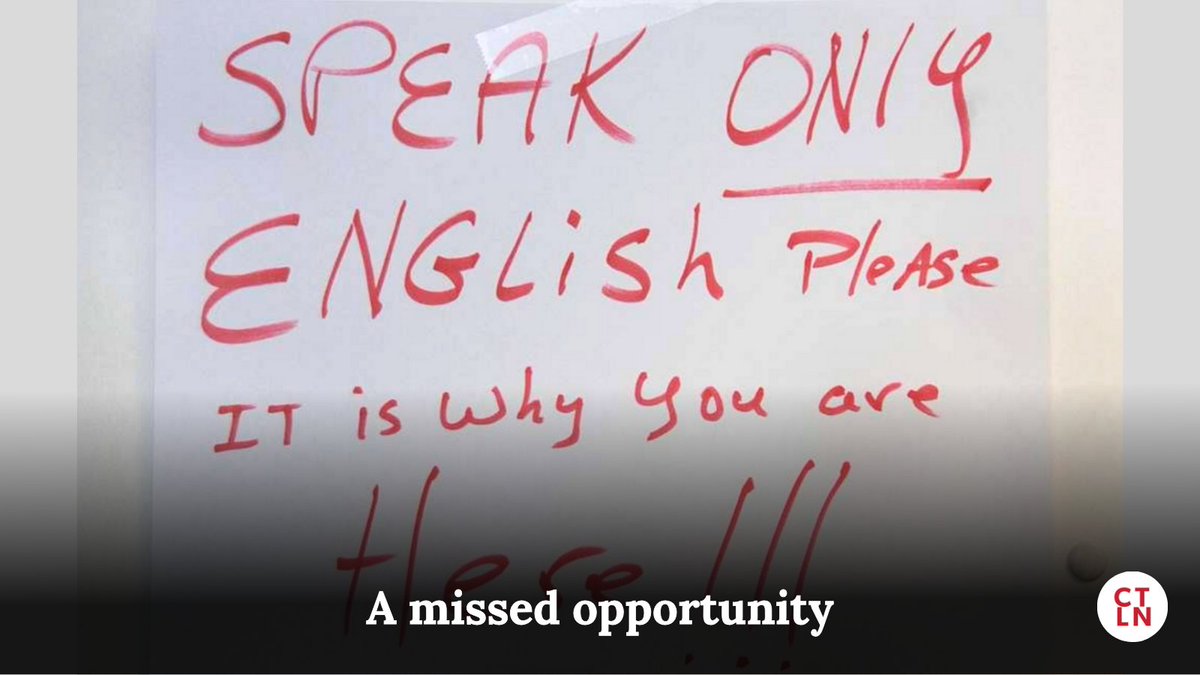 SPEAK ONLY
ENGLISH PleASE
IT is why you are
Here!!!
A missed opportunity
CT
LN